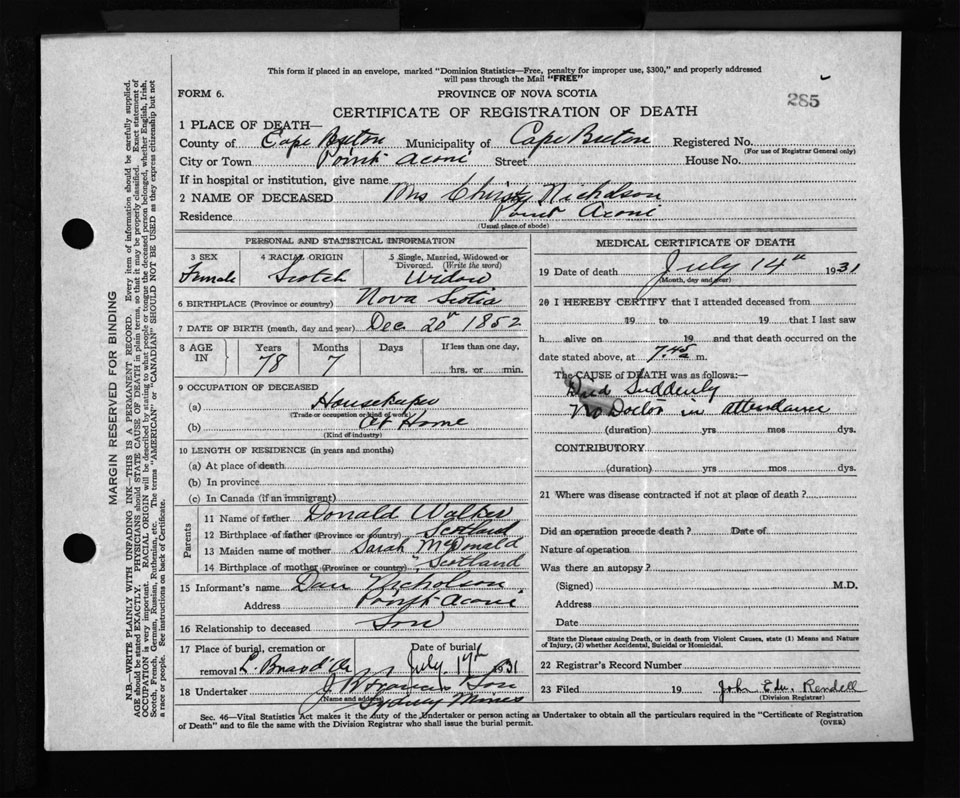 This form if placed in an envelope, marked "Dominion Statistics—Free, penalty for improper use, $300," and properly addressed
will pass through the Mail "FREE"
FORM 6.
PROVINCE OF NOVA SCOTIA
285
CERTIFICATE OF REGISTRATION OF DEATH
1 PLACE OF DEATH—
County of Cape Breton Municipality of Cape Breton Registered No.
(For use of Registrar General only)
City or Town Point Aconi Street House No.
If in hospital or institution, give name
2 NAME OF DECEASED Mrs Christy Nicholson
Residence Point Aconi
(Usual place of abode)
PERSONAL AND STATISTICAL INFORMATION
3 SEX 4 RACIAL ORIGIN 5 Single, Married, Widowed or
Divorced. (Write the word)
Female Scotch Widow
6 BIRTHPLACE (Province or country) Nova Scotia
7 DATE OF BIRTH (month, day and year) Dec. 20th 1852
8 AGE IN Years Months Days If less than one day,
78 7 hrs. or min.
9 OCCUPATION OF DECEASED
(a) Housekeeper
(Trade or occupation or kind of work)
(b) At Home
(Kind of industry)
10 LENGTH OF RESIDENCE (in years and months)
(a) At place of death
(b) In province
(c) In Canada (if an immigrant)
Parents
11 Name of father Donald Walker
12 Birthplace of father (Province or country) Scotland
13 Maiden name of mother Sarah McDonald
14 Birthplace of mother (Province or country) "Scotland
15 Informant's name Dan Nicholson
Address Point Aconi
16 Relationship to deceased Son
17 Place of burial, cremation or Date of burial
removal L. Bras d'Or July 17th 1931
18 Undertaker J. B. Son
(Name and address)
Sydney Mines
MEDICAL CERTIFICATE OF DEATH
19 Date of death July 14th 1931
(Month, day and year)
20 I HEREBY CERTIFY that I attended deceased from
19 to 19 that I last saw
h alive on 19 and that death occurred on the
date stated above, at 7.45 a m.
The CAUSE of DEATH was as follows:—
Died Suddenly
No Doctor in attendance
(duration) yrs mos dys.
CONTRIBUTORY
(duration) yrs mos dys.
21 Where was disease contracted if not at place of death?
Did an operation precede death? Date of
Nature of operation
Was there an autopsy?
(Signed) M.D.
Address
Date
State the Disease causing Death, or in death from Violent Causes, state (1) Means and Nature
of Injury, (2) whether Accidental, Suicidal or Homicidal.
22 Registrar's Record Number
23 Filed 19 John Edw. Rendell
(Division Registrar)
Sec. 46—Vital Statistics Act makes it the duty of the Undertaker or person acting as Undertaker to obtain all the particulars required in the "Certificate of Registration
of Death" and to file the same with the Division Registrar who shall issue the burial permit.
(OVER)
MARGIN RESERVED FOR BINDING
N.B.—WRITE PLAINLY WITH UNFADING INK—THIS IS A PERMANENT RECORD. Every item of information should be carefully supplied.
AGE should be stated EXACTLY. PHYSICIANS should STATE CAUSE OF DEATH in plain terms, so that it may be properly classified. Exact statement of
OCCUPATION is very important. RACIAL ORIGIN will be described by stating to what people or tongue the deceased person belonged, whether English, Irish,
Scotch, French, German, Russian, Ruthenian, etc. The terms "AMERICAN" or "CANADIAN" SHOULD NOT BE USED as they express citizenship but not
a race or people. See instructions on back of Certificate.